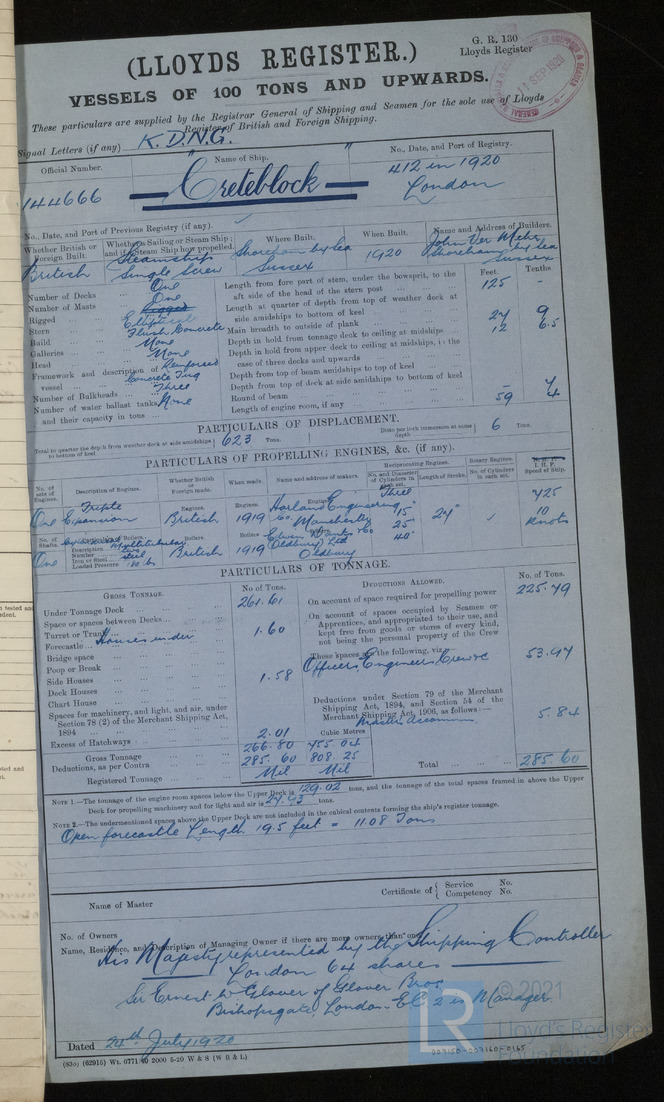 G. R. 130
Lloyds Register
(LLOYDS REGISTER.)
VESSELS OF 100 TONS AND UPWARDS.
These particulars are supplied by the Registrar General of Shipping and Seamen for the sole use of Lloyds
Register of British and Foreign Shipping.
Signal Letters (if any) K.D.N.G.
Official Number.
Name of Ship.
No., Date, and Port of Registry.
144666
"Creteblock"
412 in 1920
London
No., Date, and Port of Previous Registry (if any).
Whether British or Foreign Built.
Whether a Sailing or Steam Ship; and if a Steam Ship how propelled.
Where Built.
When Built.
Name and Address of Builders.
British
Steamship
Single Screw
Shoreham by Sea
Sussex
1920
John Ver Mehr
Shoreham by Sea
Sussex
Number of Decks One
Number of Masts One
Rigged
Stern Elliptical
Build Flush Concrete
Galleries None
Head None
Framework and description of vessel Reinforced Concrete Tug
Number of Bulkheads Three
Number of water ballast tanks, and their capacity in tons None
Feet. Tenths
Length from fore part of stem, under the bowsprit, to the aft side of the head of the stern post 125 -
Length at quarter of depth from weather deck at side amidships to bottom of keel
Main breadth to outside of plank 27 9
Depth in hold from tonnage deck to ceiling at midships 12 6.5
Depth in hold from upper deck to ceiling at midships, in the case of three decks and upwards
Depth from top of beam amidships to top of keel
Depth from top of deck at side amidships to bottom of keel
Round of beam -
Length of engine room, if any 59 4
PARTICULARS OF DISPLACEMENT.
Total to quarter the depth from weather deck at side amidships to bottom of keel 623 Tons.
Ditto per inch immersion at same depth 6 Tons.
PARTICULARS OF PROPELLING ENGINES, &c. (if any).
No. of sets of Engines.
Description of Engines.
Whether British or Foreign made.
When made.
Name and address of makers.
Reciprocating Engines.
No. and Diameter of Cylinders in each set.
Length of Stroke.
Rotary Engines.
No. of Cylinders in each set.
I. H. P.
Speed of Ship.
One
Triple Expansion
Engines.
British
Engines.
1919
Engines
Harland Engineering Co. Manchester
Three
15"
25"
40"
24"
725
10 knots
No. of Shafts.
One
Description Multitubular
Number
Iron or Steel steel
Loaded Pressure
Boilers.
British
Boilers
1919
Oldbury Ltd
Oldbury
PARTICULARS OF TONNAGE.
GROSS TONNAGE.
No of Tons.
DEDUCTIONS ALLOWED.
No. of Tons.
Under Tonnage Deck 261.61
Space or spaces between Decks
Turret or Trunk
Forecastle Houses under 1.60
Bridge space
Poop or Break
Side Houses 1.58
Deck Houses
Chart House
Spaces for machinery, and light, and air, under Section 78 (2) of the Merchant Shipping Act, 1894
Excess of Hatchways 2.01
Cubic Metres
Gross Tonnage 266.80 755.04
Deductions, as per Contra 285.60 808.25
Registered Tonnage Nil Nil
On account of space required for propelling power 225.79
On account of spaces occupied by Seamen or Apprentices, and appropriated to their use, and kept free from goods or stores of every kind, not being the personal property of the Crew
These spaces are the following, viz:
Officers Engineers Crew &c 53.97
Deductions under Section 79 of the Merchant Shipping Act, 1894, and Section 54 of the Merchant Shipping Act, 1906, as follows:—
Masters Accomm 5.84
Total 285.60
NOTE 1.—The tonnage of the engine room spaces below the Upper Deck is 129.02 tons, and the tonnage of the total spaces framed in above the Upper
Deck for propelling machinery and for light and air is 24.43 tons.
NOTE 2.—The undermentioned spaces above the Upper Deck are not included in the cubical contents forming the ship's register tonnage.
Open forecastle Length 19.5 feet = 11.08 Tons
Name of Master
Certificate of { Service No.
Competency No.
No. of Owners
Name, Residence, and Description of Managing Owner if there are more owners than one
His Majesty represented by the Shipping Controller
London 64 shares
Sir Ernest W Glover of Glover Bros
Bishopsgate, London EC 2 is Manager
Dated 24th July 1920
(83o) (62915) Wt. 6771/40 2000 5-20 W & S (W B & L)
© 2021
Lloyd's Register
Foundation
LR